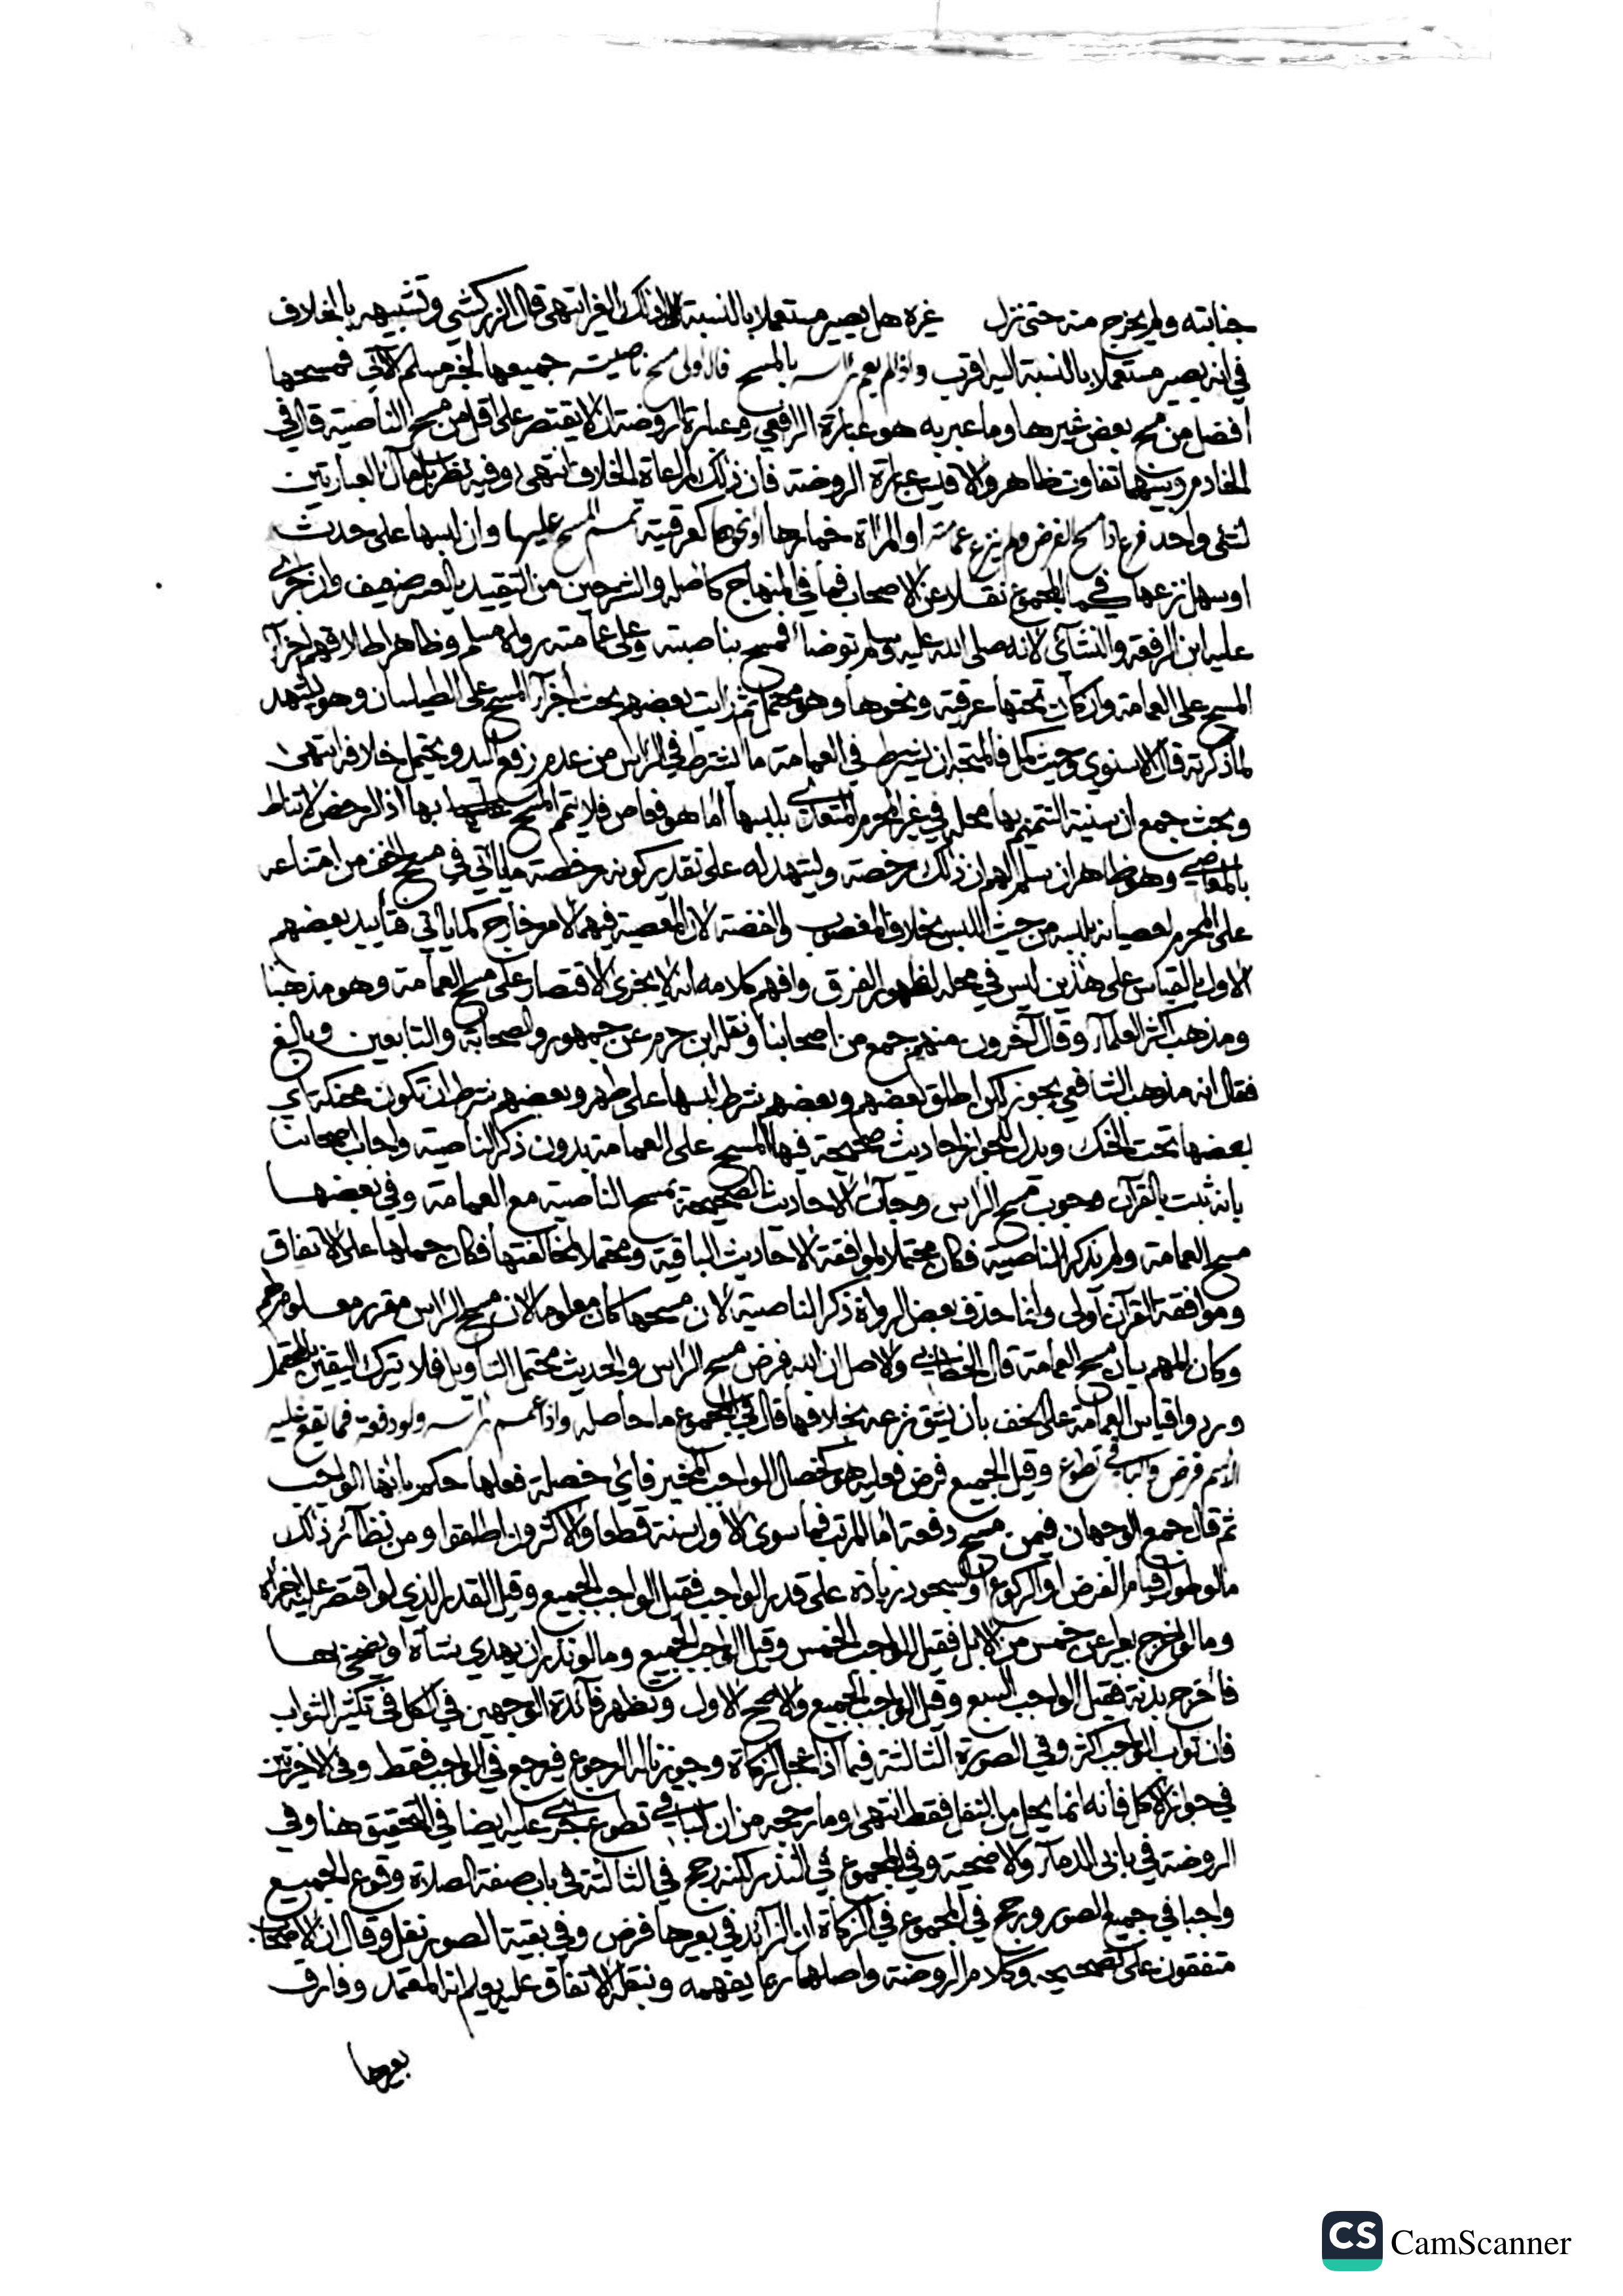 جنابته ولم يخرج منه حتى نزل غيره هل يصير مستعملا بالنسبة الى ذلك الغير انتهى قال الزركشي وتشبيهه بالخلاف
في انه يصير مستعملا بالنسبة اليه اقرب واذا لم يعم راسه بالمسح فالاولى مسح ناصيته جميعها لخبر مسلم الآتي فمسحها
افضل من مسح بعض غيرها وما عبر به هو عبارة الرافعي وعبارة الروضة ان لا يقتصر على اقل من مسح الناصية قال في
الخادم وبينهما تفاوت ظاهر والاقيس عبارة الروضة فان ذلك لمراعاة الخلاف انتهى وفيه نظر بل مآل العبارتين
لشيء واحد فرع اذا مسح الفرض ولم ينزع عمامته او المرأة خمارها او نحوها كعرقية تمم المسح عليها وان لبسها على حدث
او سهل نزعها كما في المجموع نقلا عن الاصحاب فما في المنهاج كاصله والشرحين من التقييد بالعسر ضعيف وان جرى
عليه ابن الرفعة والنشائي لانه صلى الله عليه وسلم توضأ فمسح بناصيته وعلى عمامته رواه مسلم وظاهر اطلاقهم اجزآ
المسح على العمامة وان كان تحتها عرقية ونحوها وهو محتمل ثم رايت بعضهم بحث اجزآ المسح على الطيلسان وهو يشهد
لما ذكرته قال الاسنوي وحيث كمل فالمتجه ان يشترط في العمامة ما يشترط في الراس من عدم رفع اليد ويحتمل خلافه انتهى
وبحث جمع ان سنية التتميم بها محله في غير المحرم المتعدي بلبسها اما هو فعاص فلا يتمم المسح بها اذ الرخص لا تناط
بالمعاصي وهو ظاهر ان سلم لهم ان ذلك رخصة ويشهد له على تقدير كونه رخصة ما ياتي في مسح الخف من امتناعه
على المحرم لعصيانه بلبسه من حيث اللبس بخلاف المغصوب والفضة لان المعصية فيهما لامر خارج كما ياتي فتأييد بعضهم
الاول بالقياس على هذين ليس في محله لظهور الفرق وافهم كلامه انه لا يجزئ الاقتصار على مسح العمامة وهو مذهبنا
ومذهب اكثر العلمآء وقال آخرون منهم جمع من اصحابنا ونقله ابن حزم عن جمهور الصحابة والتابعين وبالغ
فقال انه مذهب الشافعي يجوز لكن اطلق بعضهم وبعضهم شرط لبسها على طهر وبعضهم شرط ان تكون محنكة اي
بعضها تحت الحنك ويدل للجواز احاديث صحيحة فيها المسح على العمامة بدون ذكر الناصية واجاب اصحابنا
بانه ثبت بالقرآن وجوب مسح الراس وجآت الاحاديث الصحيحة بمسح الناصية مع العمامة وفي بعضها
مسح العمامة ولم يذكر الناصية فكان محتملا لموافقة الاحاديث الباقية ومحتملا لمخالفتها فكان حملها على الاتفاق
وموافقة القرآن اولى وانما حذف بعض الرواة ذكر الناصية لان مسحها كان معلوما لان مسح الراس مقرر معلوم لهم
وكان المهم بيان مسح العمامة قال الخطابي والاصل ان الله فرض مسح الراس والحديث محتمل التاويل فلا يترك اليقين بالمحتمل
وردوا قياس العمامة على الخف بان يشق نزعه بخلافها قال في المجموع ما حاصله واذا عمم راسه ولو دفعة فما يقع عليه
الاسم فرض والباقي تطوع وقيل الجميع فرض فعليه هو كخصال الواجب المخير فاي خصلة فعلها حكم بانها الواجب
ثم قال جمع الوجهان فيمن مسح دفعة اما المرتب فما سوى الاول سنة قطعا والاكثرون اطلقوا ومن نظآئر ذلك
ما لو طول قيام الفرض او الركوع او السجود زيادة على قدر الواجب فقيل الواجب الجميع وقيل القدر الذي لو اقتصر عليه اجزأه
وما لو اخرج بعيرا عن خمس من الابل فقيل الواجب الخمس وقيل الواجب الجميع وما لو نذر ان يهدي شاة او يضحي بها
فأخرج بدنة فقيل الواجب السبع وقيل الواجب الجميع والاصح الاول وتظهر فآئدة الوجهين في الكل في تكثير الثواب
فان ثواب الواجب اكثر وفي الصورة الثالثة فيما اذا عجل الزكاة وجوزنا له الرجوع فيرجع في الواجب فقط وفي الاخيرتين
في جواز الاكل فانه انما يحل من النفل فقط انتهى وما رجحه من ان الباقي تطوع جرى عليه ايضا في التحقيق هنا وفي
الروضة في بابي الدمآء والاضحية وفي المجموع في النذر لكنه رجح في الثالثة في باب صفة الصلاة وقوع الجميع
واجبا في جميع الصور ورجح في المجموع في الزكاة ان الزآئد في بعيرها فرض وفي بقية الصور نفل وقال ان الاصحاب
متفقون على تصحيحه وكلام الروضة واصلها ربما يفهمه وبنقله الاتفاق عليه يعلم انه المعتمد وفارق
بعيرها
CS CamScanner